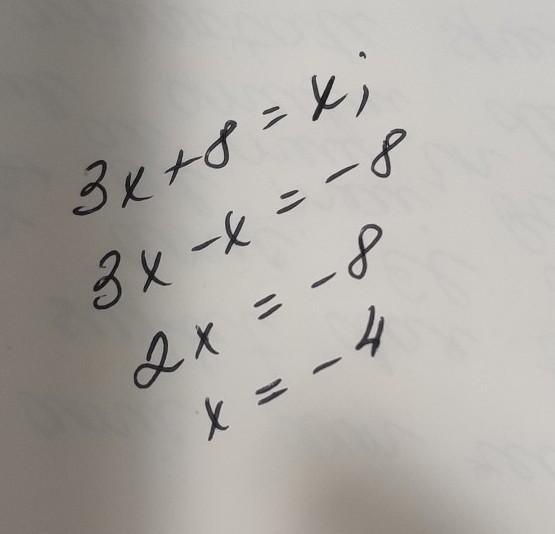 3x+8=x;
3x-x=-8
2x=-8
x=-4